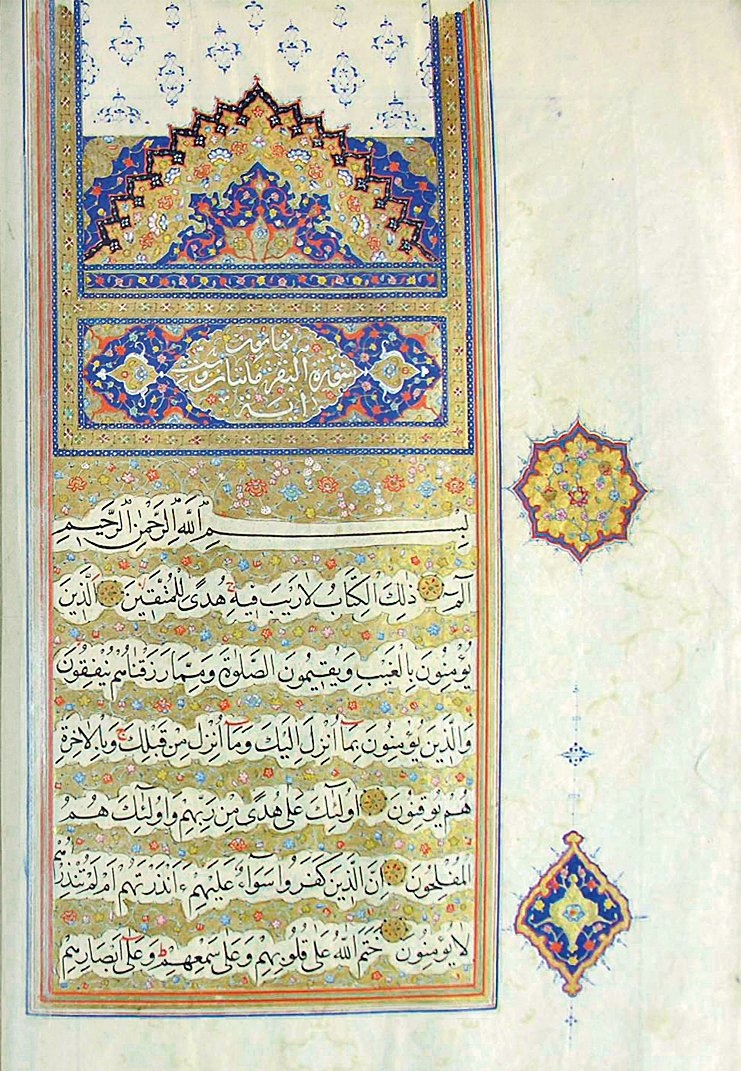 سورة البقرة مائتان وست و
ثمانون
آية
بِسْمِ اللَّهِ الرَّحْمٰنِ الرَّحِيمِ
الٓمٓ ذٰلِكَ الْكِتَابُ لَا رَيْبَ فِيهِ ج هُدًى لِلْمُتَّقِينَ لا الَّذِينَ
يُؤْمِنُونَ بِالْغَيْبِ وَيُقِيمُونَ الصَّلٰوةَ وَمِمَّا رَزَقْنَاهُمْ يُنْفِقُونَ
وَالَّذِينَ يُؤْمِنُونَ بِمَٓا اُنْزِلَ اِلَيْكَ وَمَٓا اُنْزِلَ مِنْ قَبْلِكَ ج وَبِالْاٰخِرَةِ
هُمْ يُوقِنُونَ اُولٰٓئِكَ عَلٰى هُدًى مِنْ رَبِّهِمْ وَاُولٰٓئِكَ هُمُ
الْمُفْلِحُونَ اِنَّ الَّذِينَ كَفَرُوا سَوَٓاءٌ عَلَيْهِمْ ءَاَنْذَرْتَهُمْ اَمْ لَمْ تُنْذِرْهُمْ
لَا يُؤْمِنُونَ خَتَمَ اللّٰهُ عَلٰى قُلُوبِهِمْ وَعَلٰى سَمْعِهِمْ ط وَعَلٰٓى اَبْصَارِهِمْ